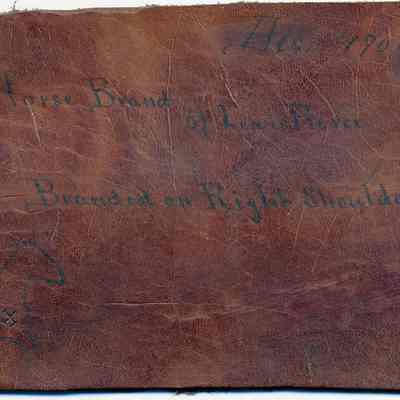 Dec 190
Horse Brand
of Lewis Pierce
Branded on Right Shoulde